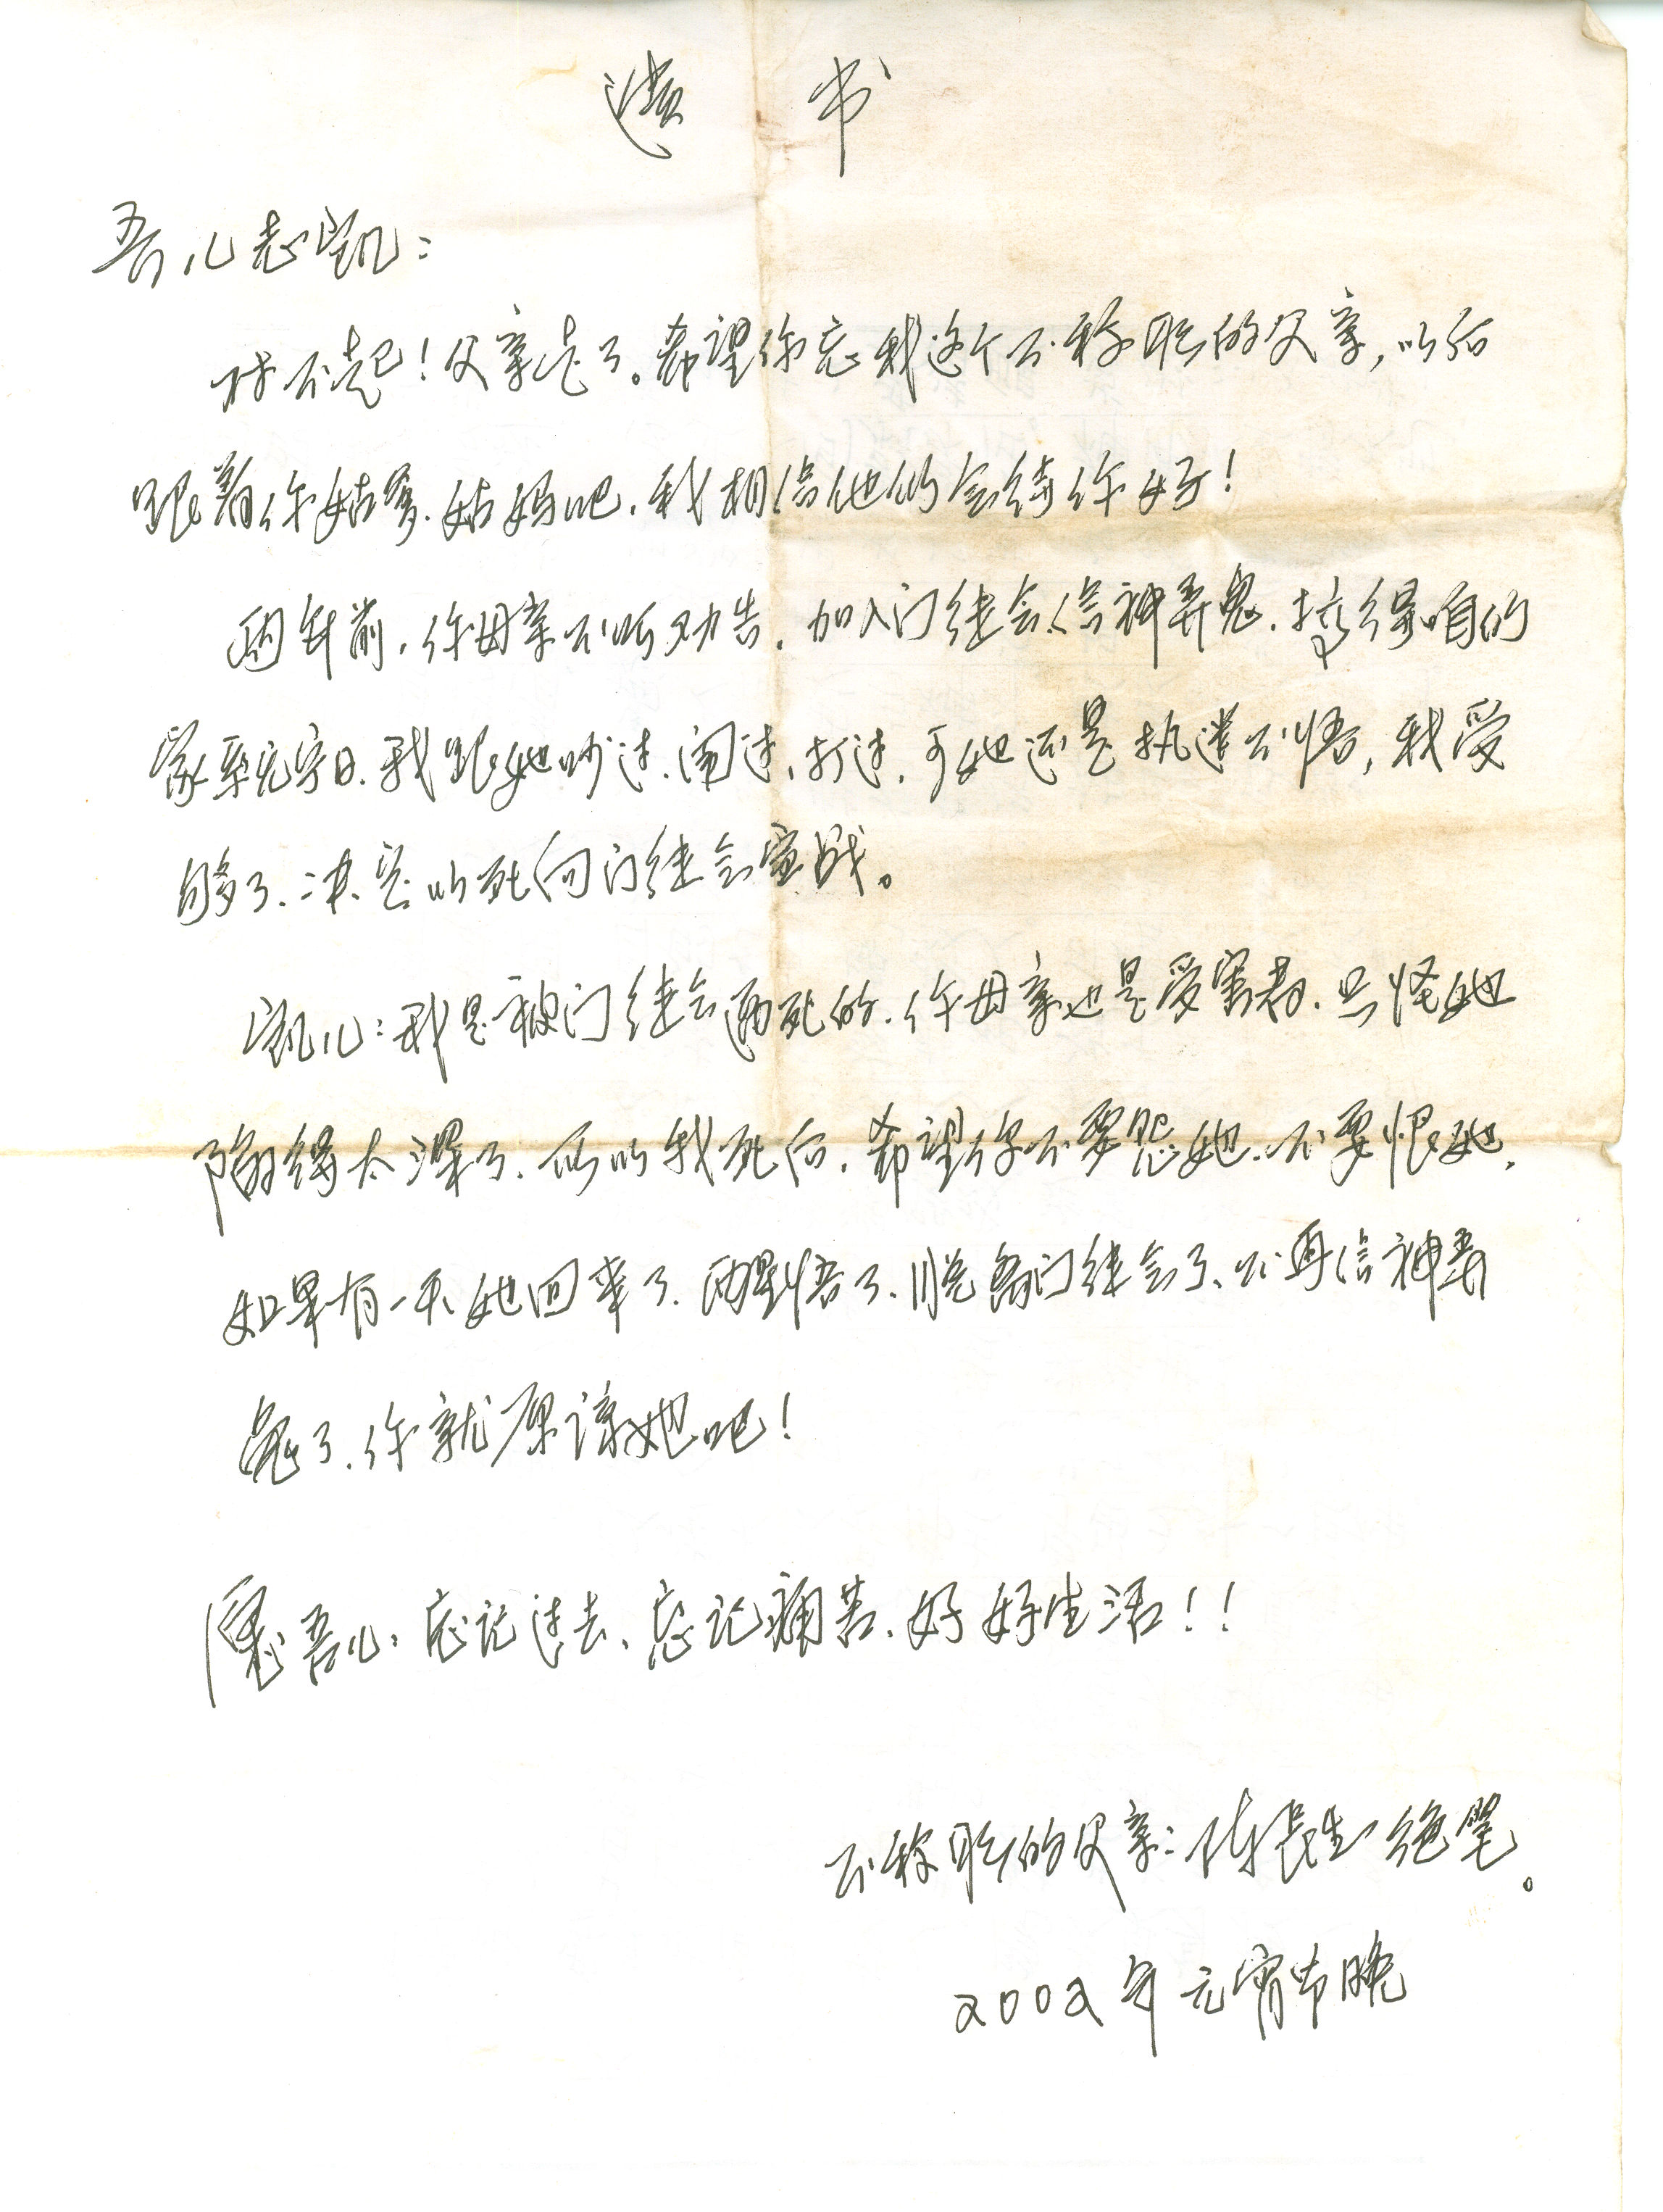 遗书
吾儿志凯：
对不起！父亲走了。希望你忘我这个不称职的父亲，以后
跟着你姑爹、姑妈吧，我相信他们会待你好！
两年前，你母亲不听劝告，加入门徒会信神弄鬼，搞得咱的
家永无宁日，我跟她吵过、闹过、打过，可她还是执迷不悟，我受
够了，决定以死向门徒会宣战。
凯儿：我是被门徒会逼死的，你母亲也是受害者，只怪她
陷得太深了，所以我死后，希望你不要怨她、不要恨她，
如果有一天她回来了，醒悟了、脱离门徒会了、不再信神弄
鬼了，你就原谅她吧！
愿吾儿：忘记过去、忘记痛苦、好好生活！！
不称职的父亲：陈长生绝笔。
2002年元宵节晚